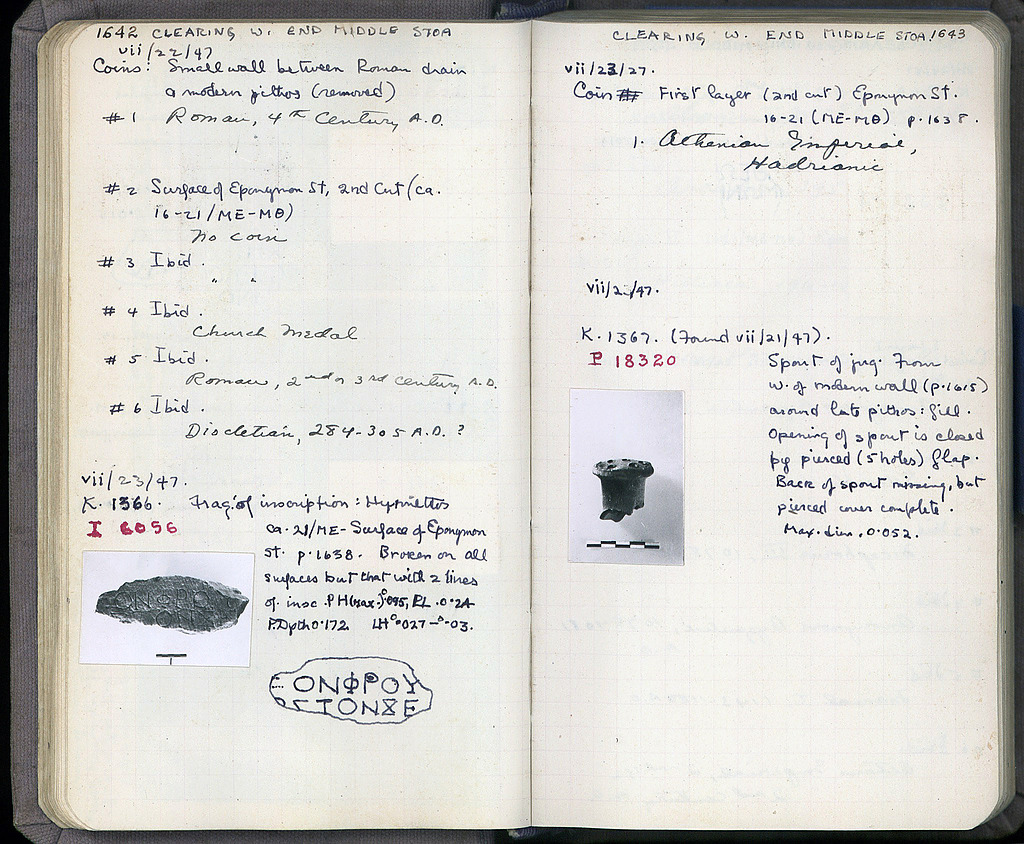 1642 CLEARING W. END MIDDLE STOA
vii/22/47
Coins: Small wall between Roman drain
& modern pithos (removed)
# 1 Roman, 4th Century A.D.
# 2 Surface of Eponymon St, 2nd Cut (ca.
16-21/ME-MΘ)
No coin
# 3 Ibid.
" "
# 4 Ibid.
Church Medal
# 5 Ibid.
Roman, 2nd or 3rd century A.D.
# 6 Ibid.
Diocletian, 284-305 A.D. ?
vii/23/47.
K. 1366. Frag. of inscription: Hymettos
I 6056
ca. 21/ME- Surface of Eponymon
St. p. 1638. Broken on all
surfaces but that with 2 lines
of insc. P.H (max.) 0.095, P.L. 0.24
P.Dpth 0.172. LH 0.027-0.03.
ΕΟΝΦΡΟΥ
ΟΣΤΟΝΞΕ
CLEARING W. END MIDDLE STOA. 1643
vii/23/27.
Coin First layer (2nd cut) Eponymon St.
16-21 (ME-MΘ) p. 1638.
1. Athenian Imperial,
Hadrianic
vii/2 /47.
K. 1367. (Found vii/21/47).
P 18320
Spout of jug. From
W. of modern wall (p. 1615)
around late pithos: fill.
Opening of spout is closed
by pierced (5 holes) flap.
Back of spout missing, but
pierced cover complete.
Max. dim. 0.052.